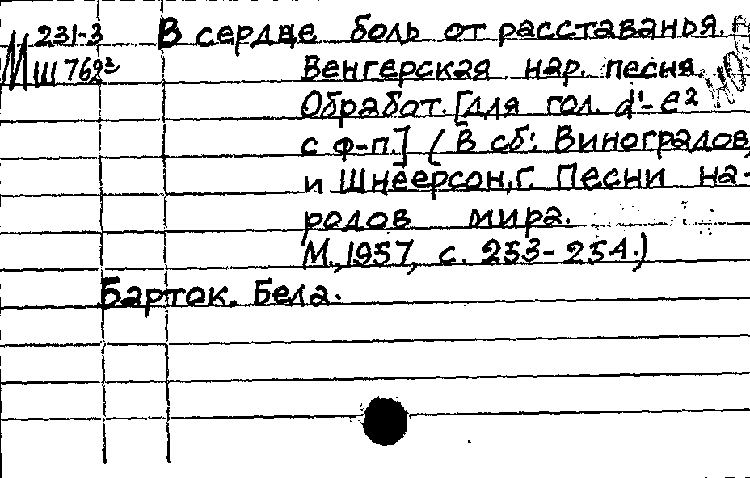 231-3 В сердце боль от расставанья.
М Ш 762² Венгерская нар. песня.
Обработ. [для гол. d¹-e²
с ф-п.] (В сб.: Виноградов,
и Шнеерсон, Г. Песни на-
родов мира.
М., 1957, с. 253-254.)
Барток, Бела.